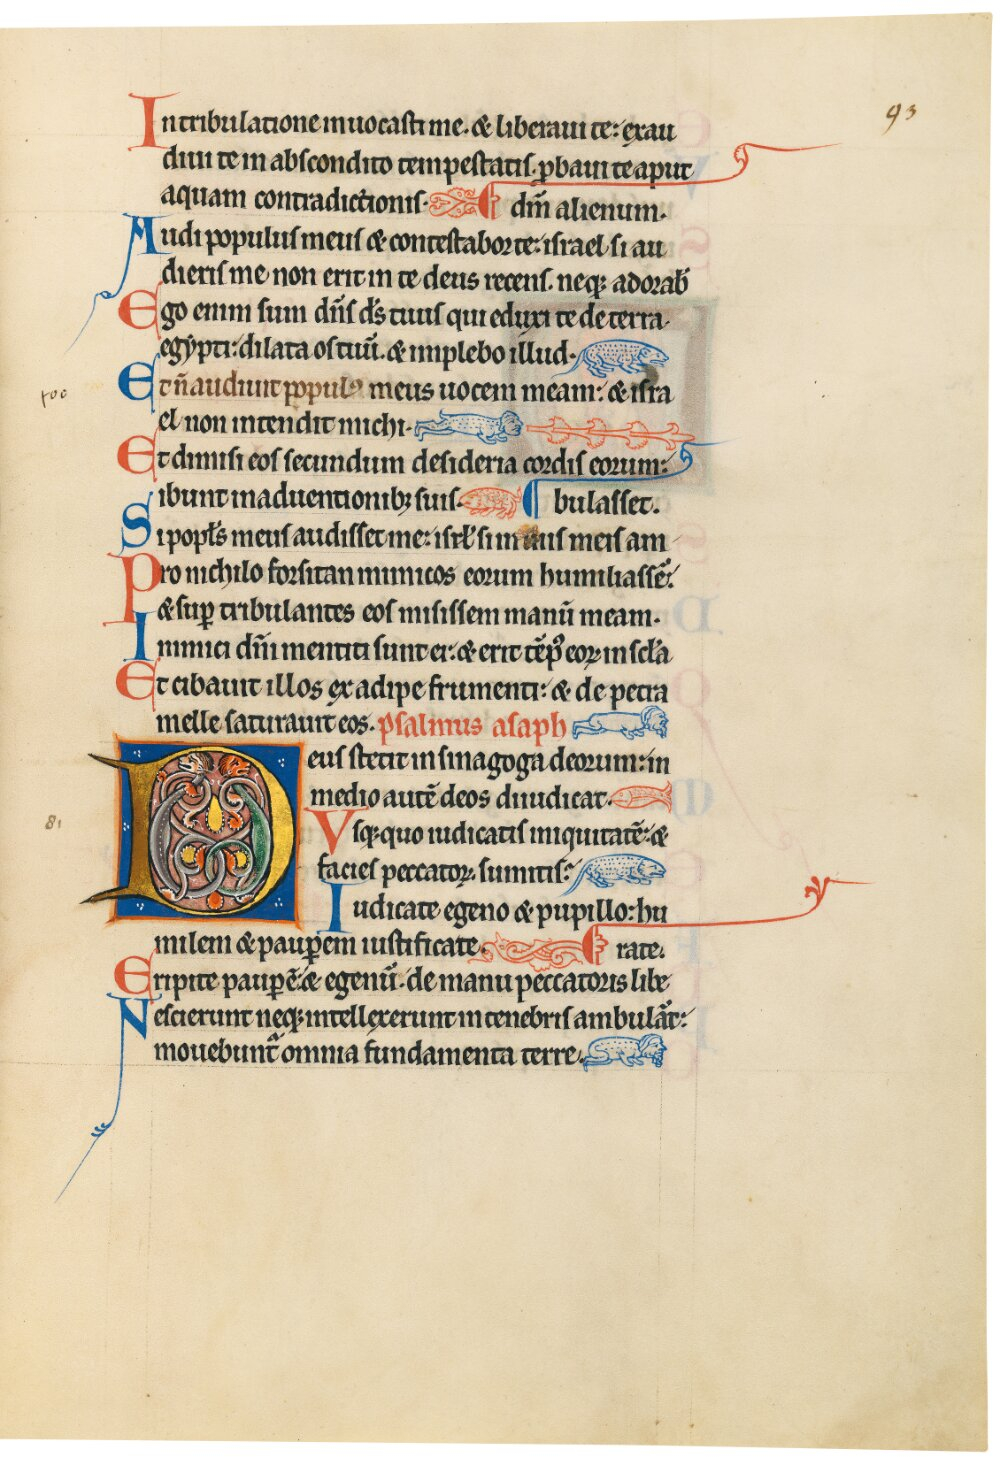 93
In tribulatione inuocasti me. & liberaui te: exau
diui te in abscondito tempestatis. ꝓbaui te aput
aquam contradictionis. dm̄ alienum.
Audi populus meus & contestabor te: israel si au
dieris me non erit in te deus recens. neqꝫ adorab̄
Ego enim sum dn̄s ds̄ tuus qui eduxi te de terra
egypti: dilata os tuū. & implebo illud.
Et n̄ audiuit popul meus uocem meam: & isra
roo
el non intendit michi.
Et dimisi eos secundum desideria cordis eorum:
ibunt in aduentionibꝫ suis. bulasset.
Si popls̄ meus audisset me: isrl̄ si in uiis meis am
Pro nichilo forsitan inimicos eorum humiliassē:
& suꝑ tribulantes eos misissem manū meam.
Inimici dn̄i mentiti sunt ei: & erit tēpꝰ eoꝝ in scl̄a
Et cibauit illos ex adipe frumenti: & de petra
melle saturauit eos. psalmus asaph
Deus stetit in sinagoga deorum: in
medio autē deos diiudicat.
81
Vsqꝫ quo iudicatis iniquitatē: &
facies peccatoꝝ. sumitis?
Iudicate egeno & pupillo: hu
milem & pauꝑem iustificate. rate.
Eripite pauꝑē: & egenū. de manu peccatoris libe
Nescierunt neqꝫ intellexerunt in tenebris ambulāt:
mouebunt᷑ omnia fundamenta terre.